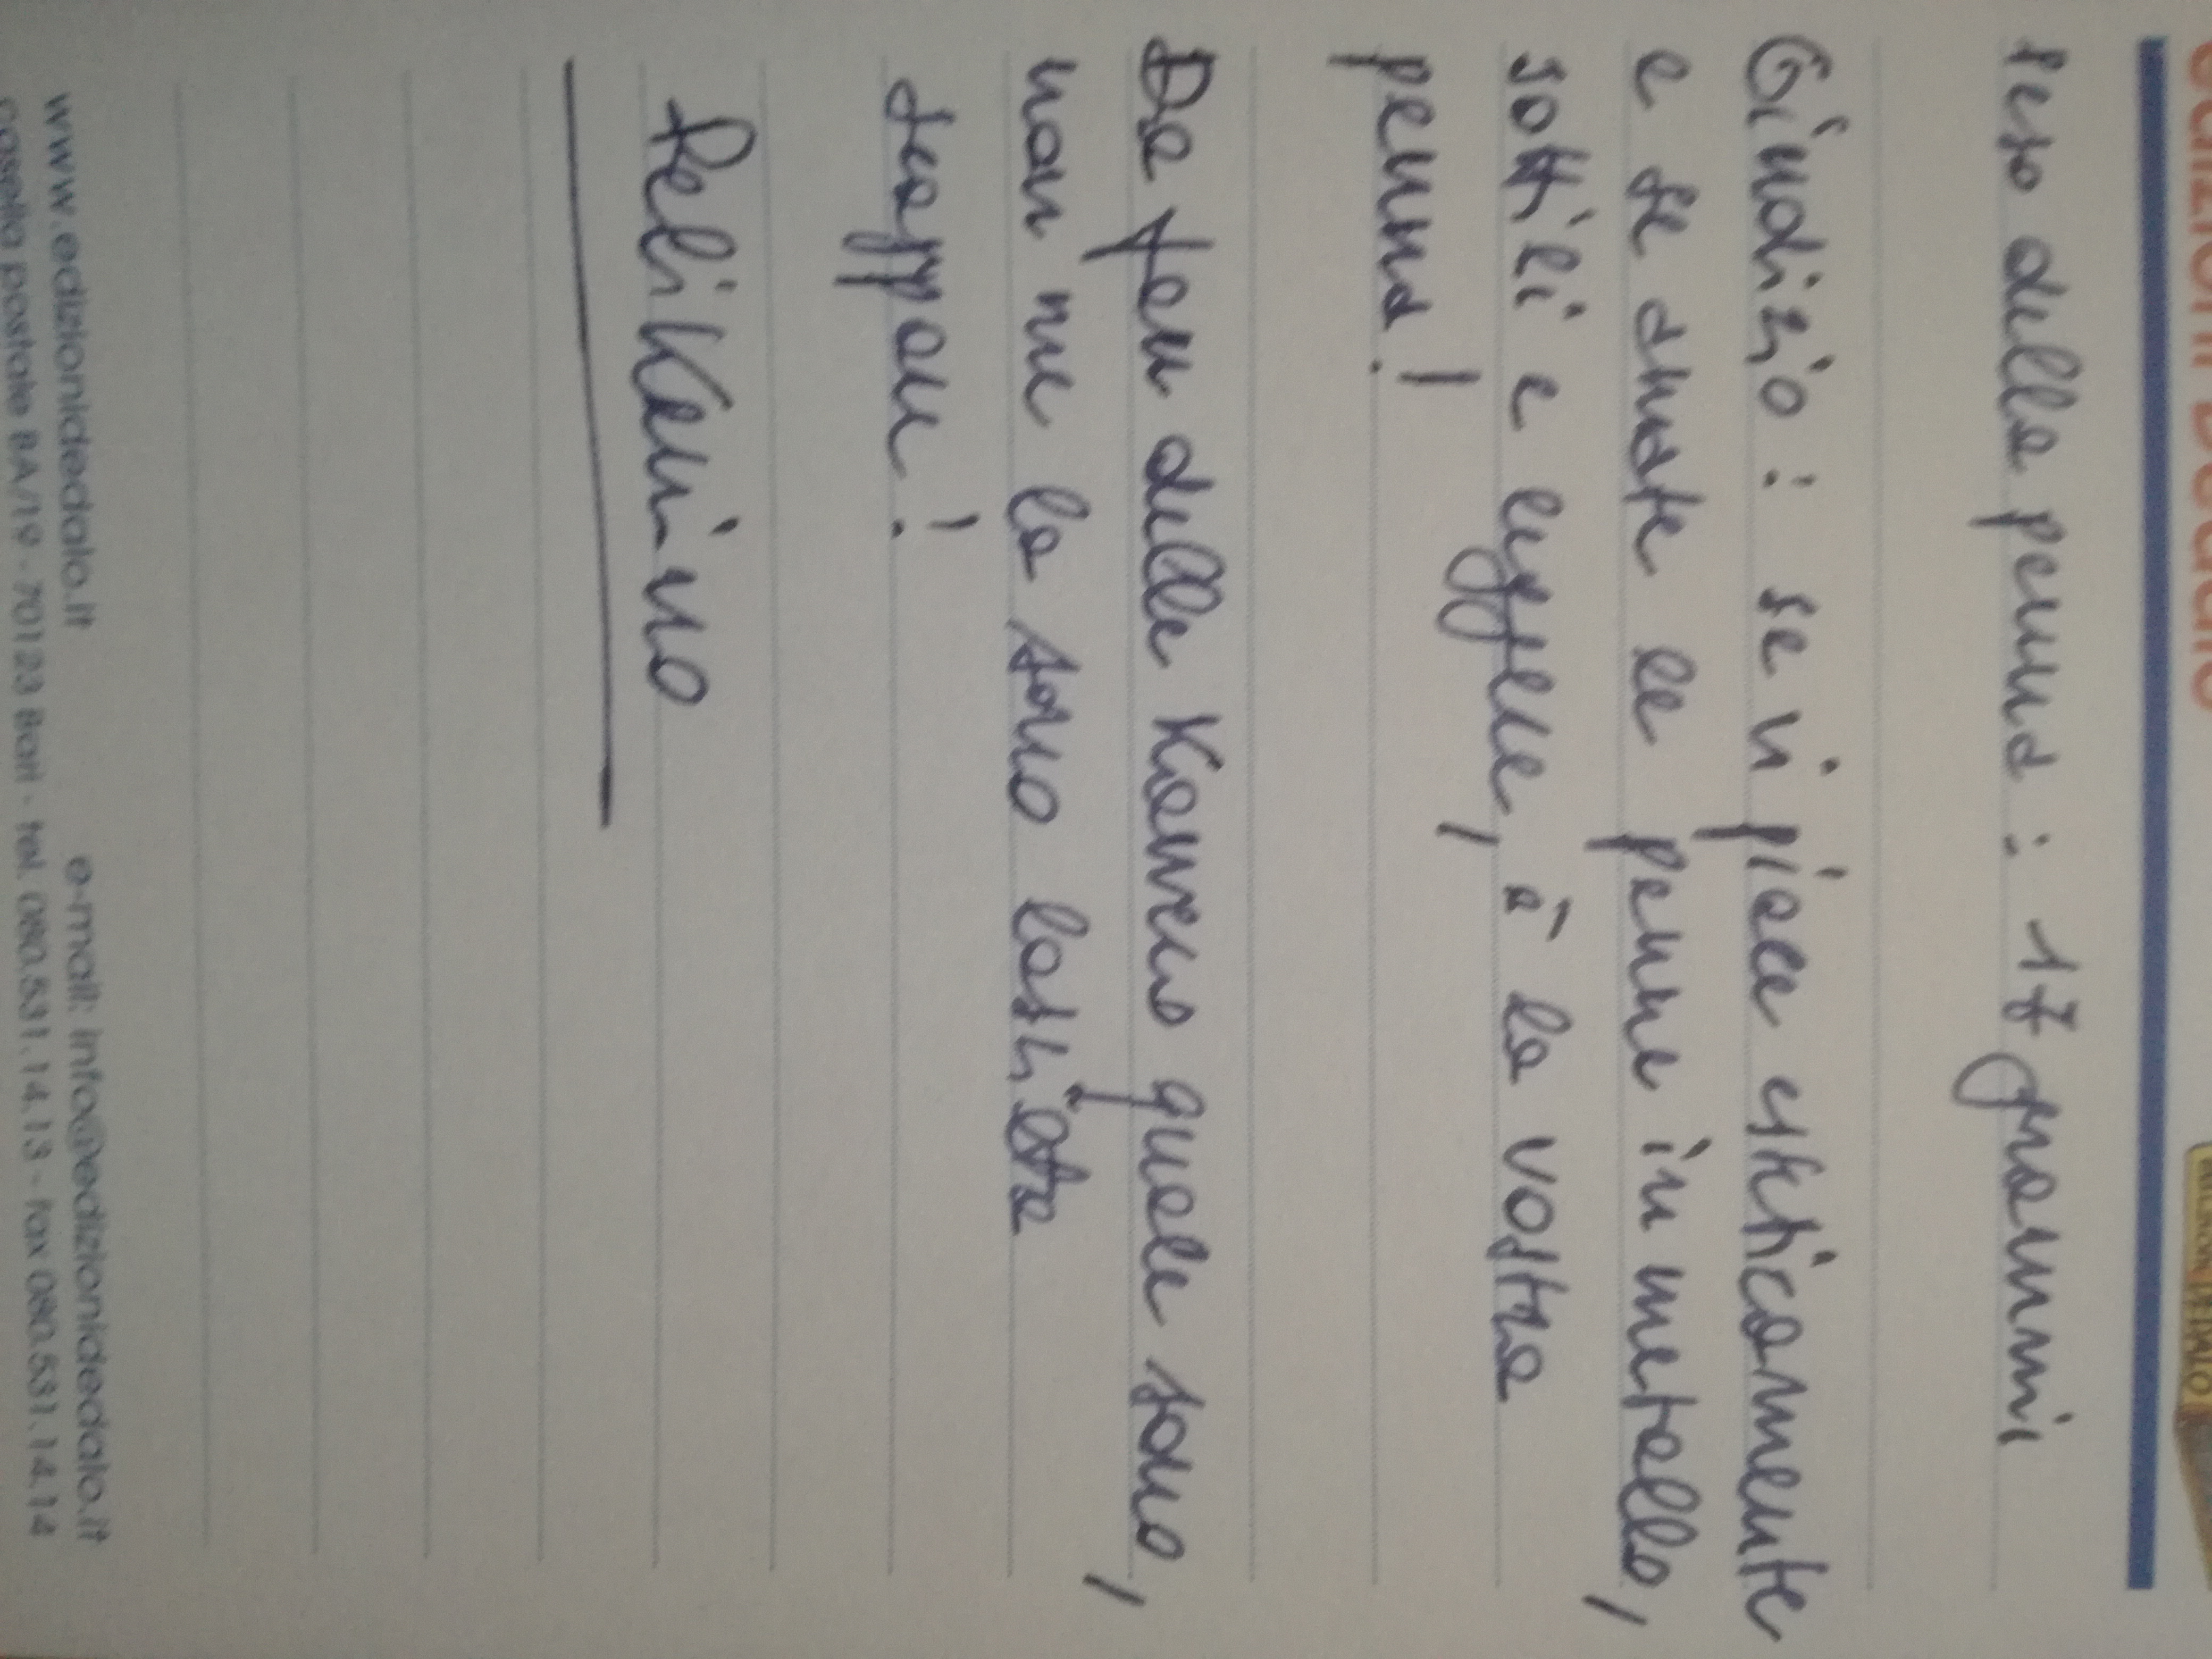 Edizioni Dedalo
Peso della penna: 17 grammi
Giudizio: se vi piace esteticamente
e se amate le penne in metallo,
sottili e leggere, è la vostra
penna!
Da fan delle Kaweco quale sono,
non me la sono lasciata
scappare!
Pelikanino
www.edizionidedalo.it e-mail: info@edizionidedalo.it
casella postale BA/19 - 70123 Bari - tel. 080.531.14.13 - fax 080.531.14.14